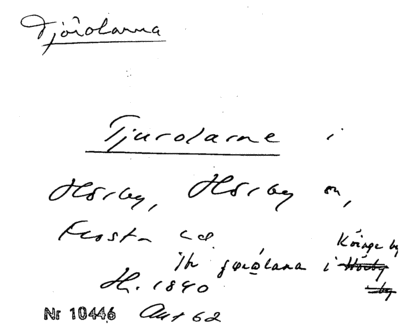 Tjörolarna
Tjurolarne i
Hörby, Hörby sn,
Frosta hd
Köinge by
Th. i Hörby
by
H. 1840
Nr 10446